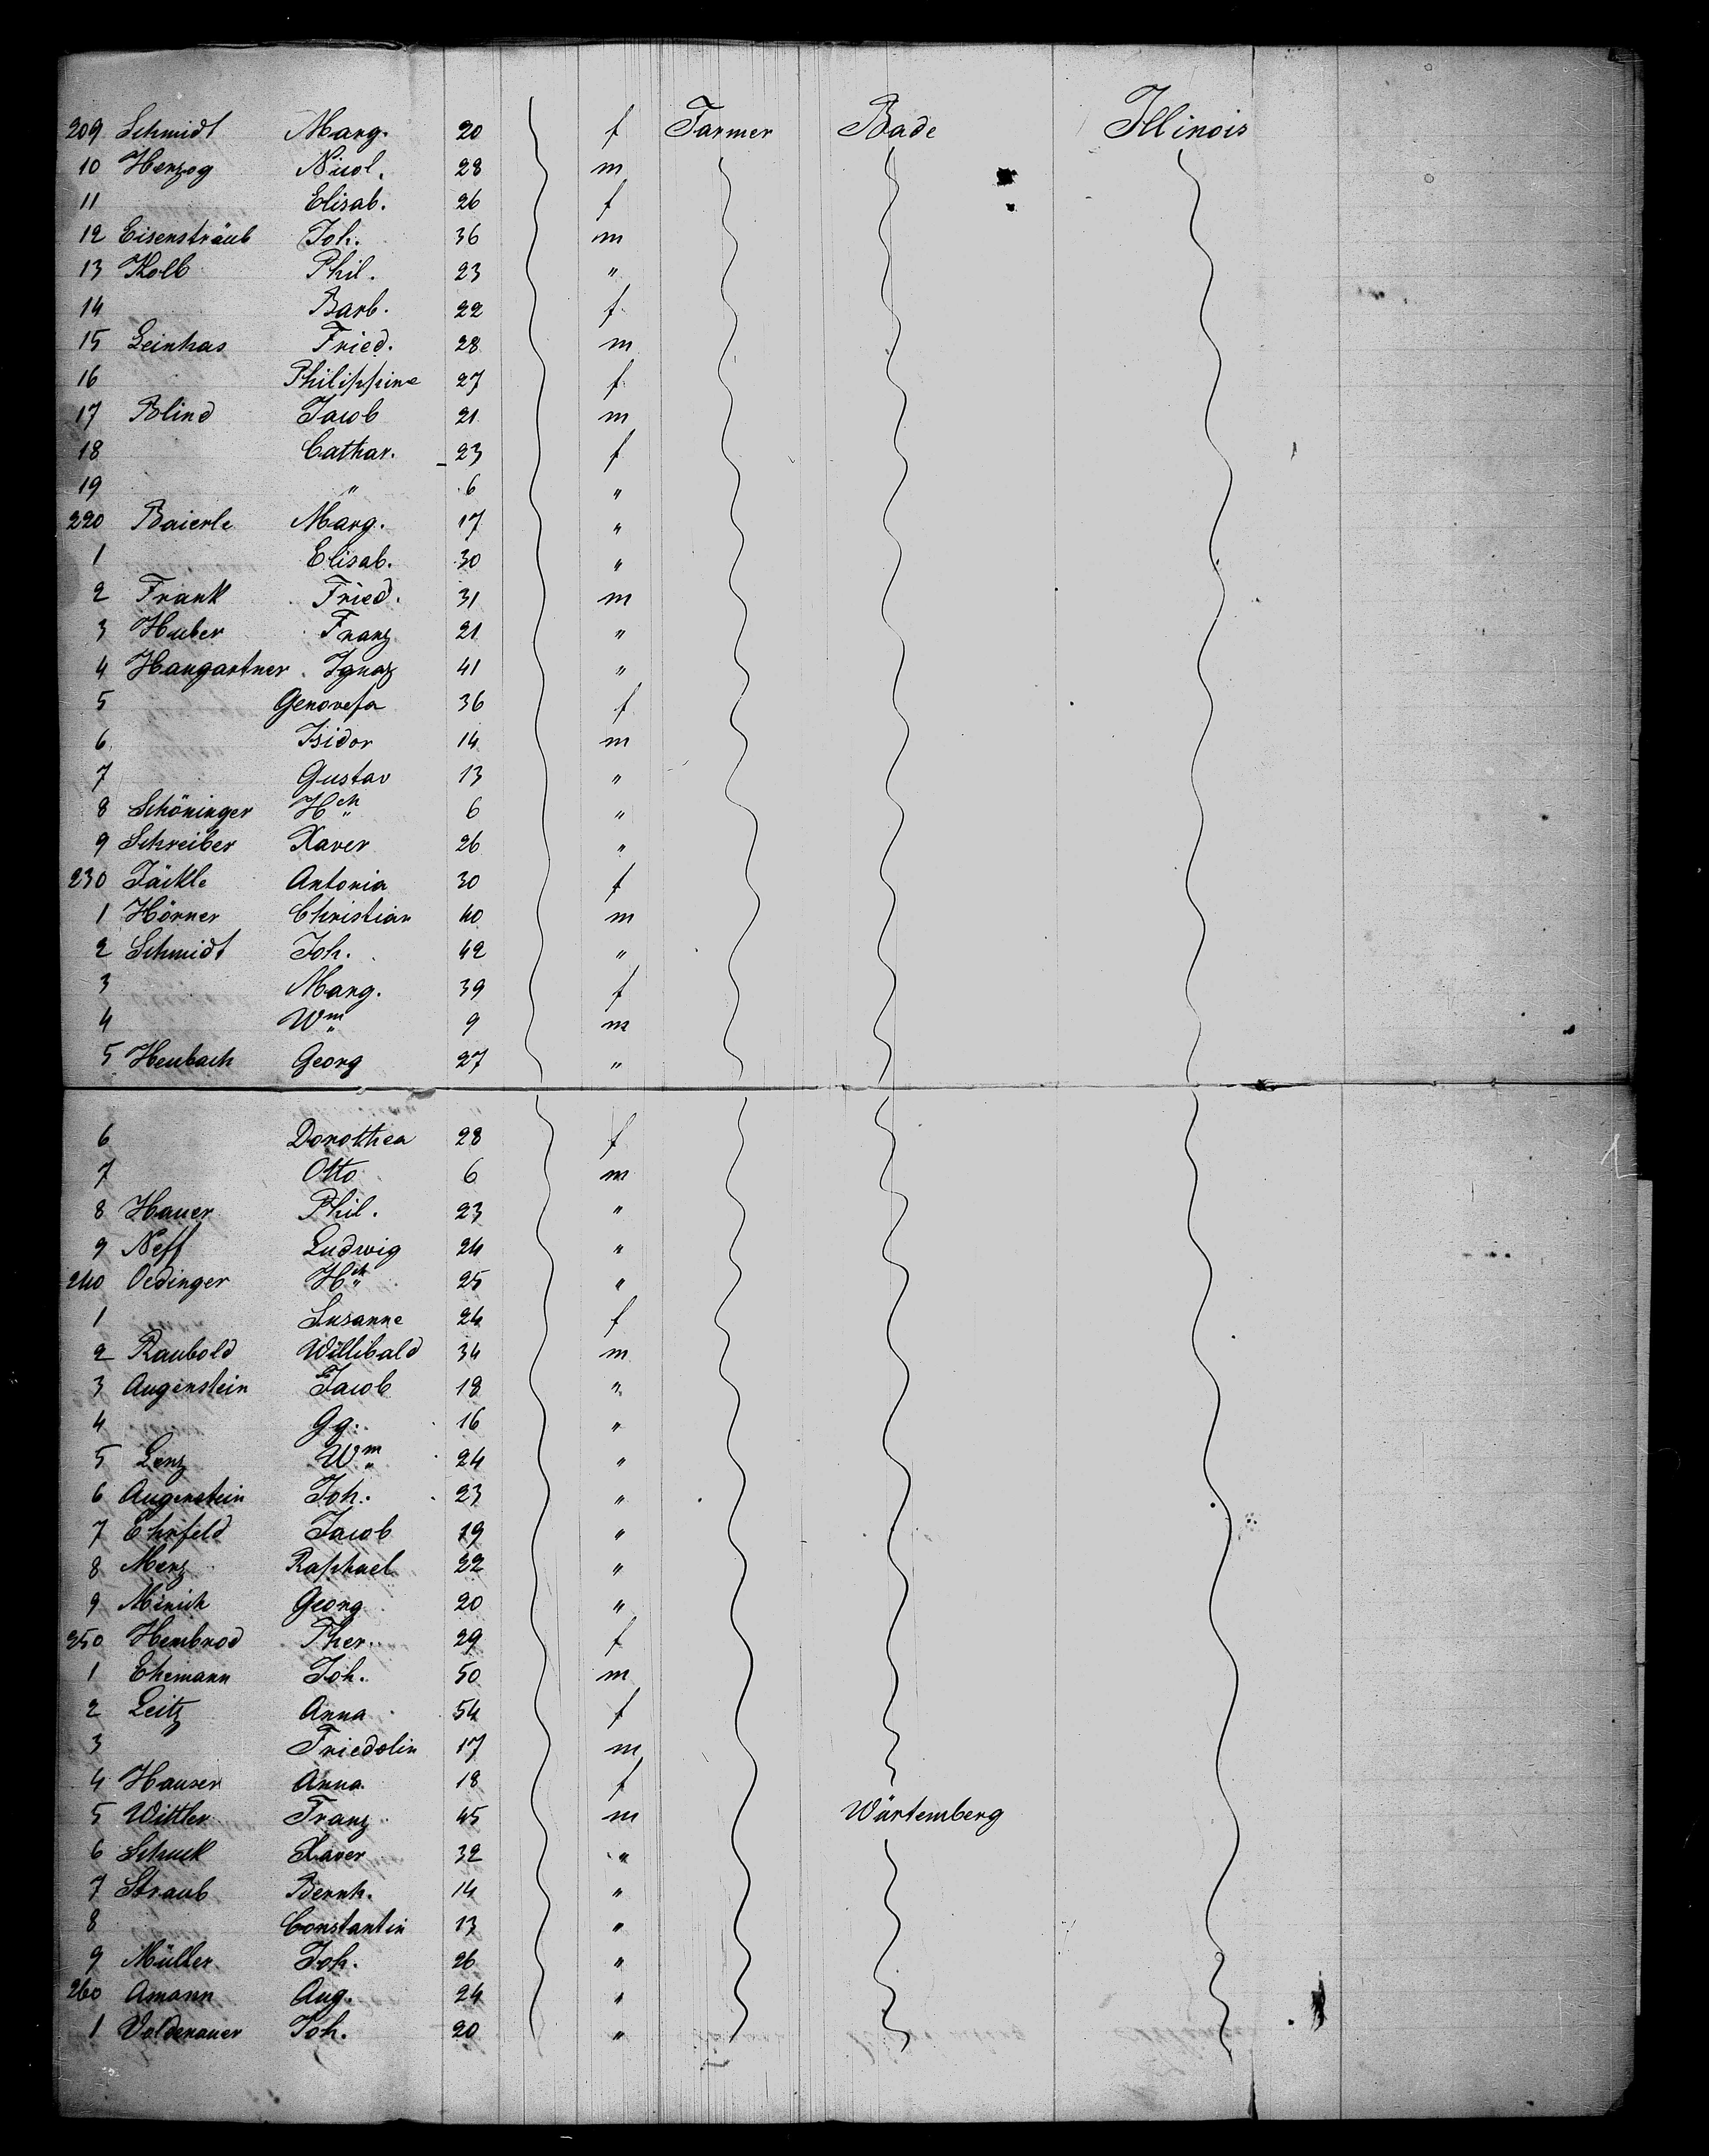 209 Schmidt Marg. 20 f Farmer Bade Illinois
10 Herzog Nicol. 28 m
11 Elisab. 26 f
12 Eisensträub Joh. 36 m
13 Kolb Phil. 23 "
14 Barb. 22 f
15 Leinhas Fried. 28 m
16 Philippine 27 f
17 Blind Jacob 21 m
18 Cathar. 23 f
19 " 6 "
220 Baierle Marg. 17 "
1 Elisab. 30 "
2 Frank Fried. 31 m
3 Huber Franz 21 "
4 Hangartner Ignaz 41 "
5 Genovefa 36 f
6 Isidor 14 m
7 Gustav 13 "
8 Schöninger Hch 6 "
9 Schreiber Xaver 26 "
230 Jäckle Antonia 30 f
1 Hörner Christian 40 m
2 Schmidt Joh. 42 "
3 Marg. 39 f
4 Wm 9 m
5 Heubach Georg 27 "
6 Dorothea 28 f
7 Otto 6 m
8 Hauer Phil. 23 "
9 Neff Ludwig 24 "
240 Oedinger Hch 25 "
1 Susanne 24 f
2 Raubold Willibald 34 m
3 Augenstein Jacob 18 "
4 Gg. 16 "
5 Lenz Wm 24 "
6 Augenstein Joh. 23 "
7 Ehrfeld Jacob 19 "
8 Merz Raphael 22 "
9 Minich Georg 20 "
250 Hembrod Ther. 29 f
1 Ehemann Joh. 50 m
2 Leitz Anna 54 f
3 Friedolin 17 m
4 Hauser Anna 18 f
5 Wittler Franz 45 m Würtemberg
6 Schuck Xaver 32 "
7 Straub Bernh. 14 "
8 Constantin 13 "
9 Müller Joh. 26 "
260 Amann Aug. 24 "
1 Valdenauer Joh. 20 "